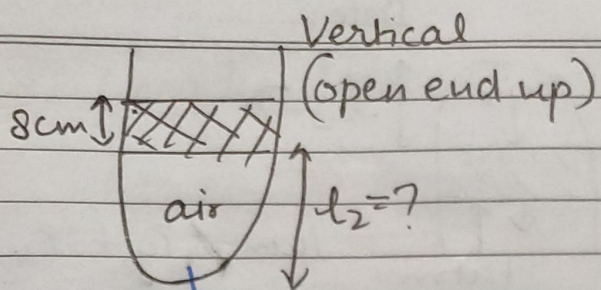 Vertical
(open end up)
8cm
air
l₂=?